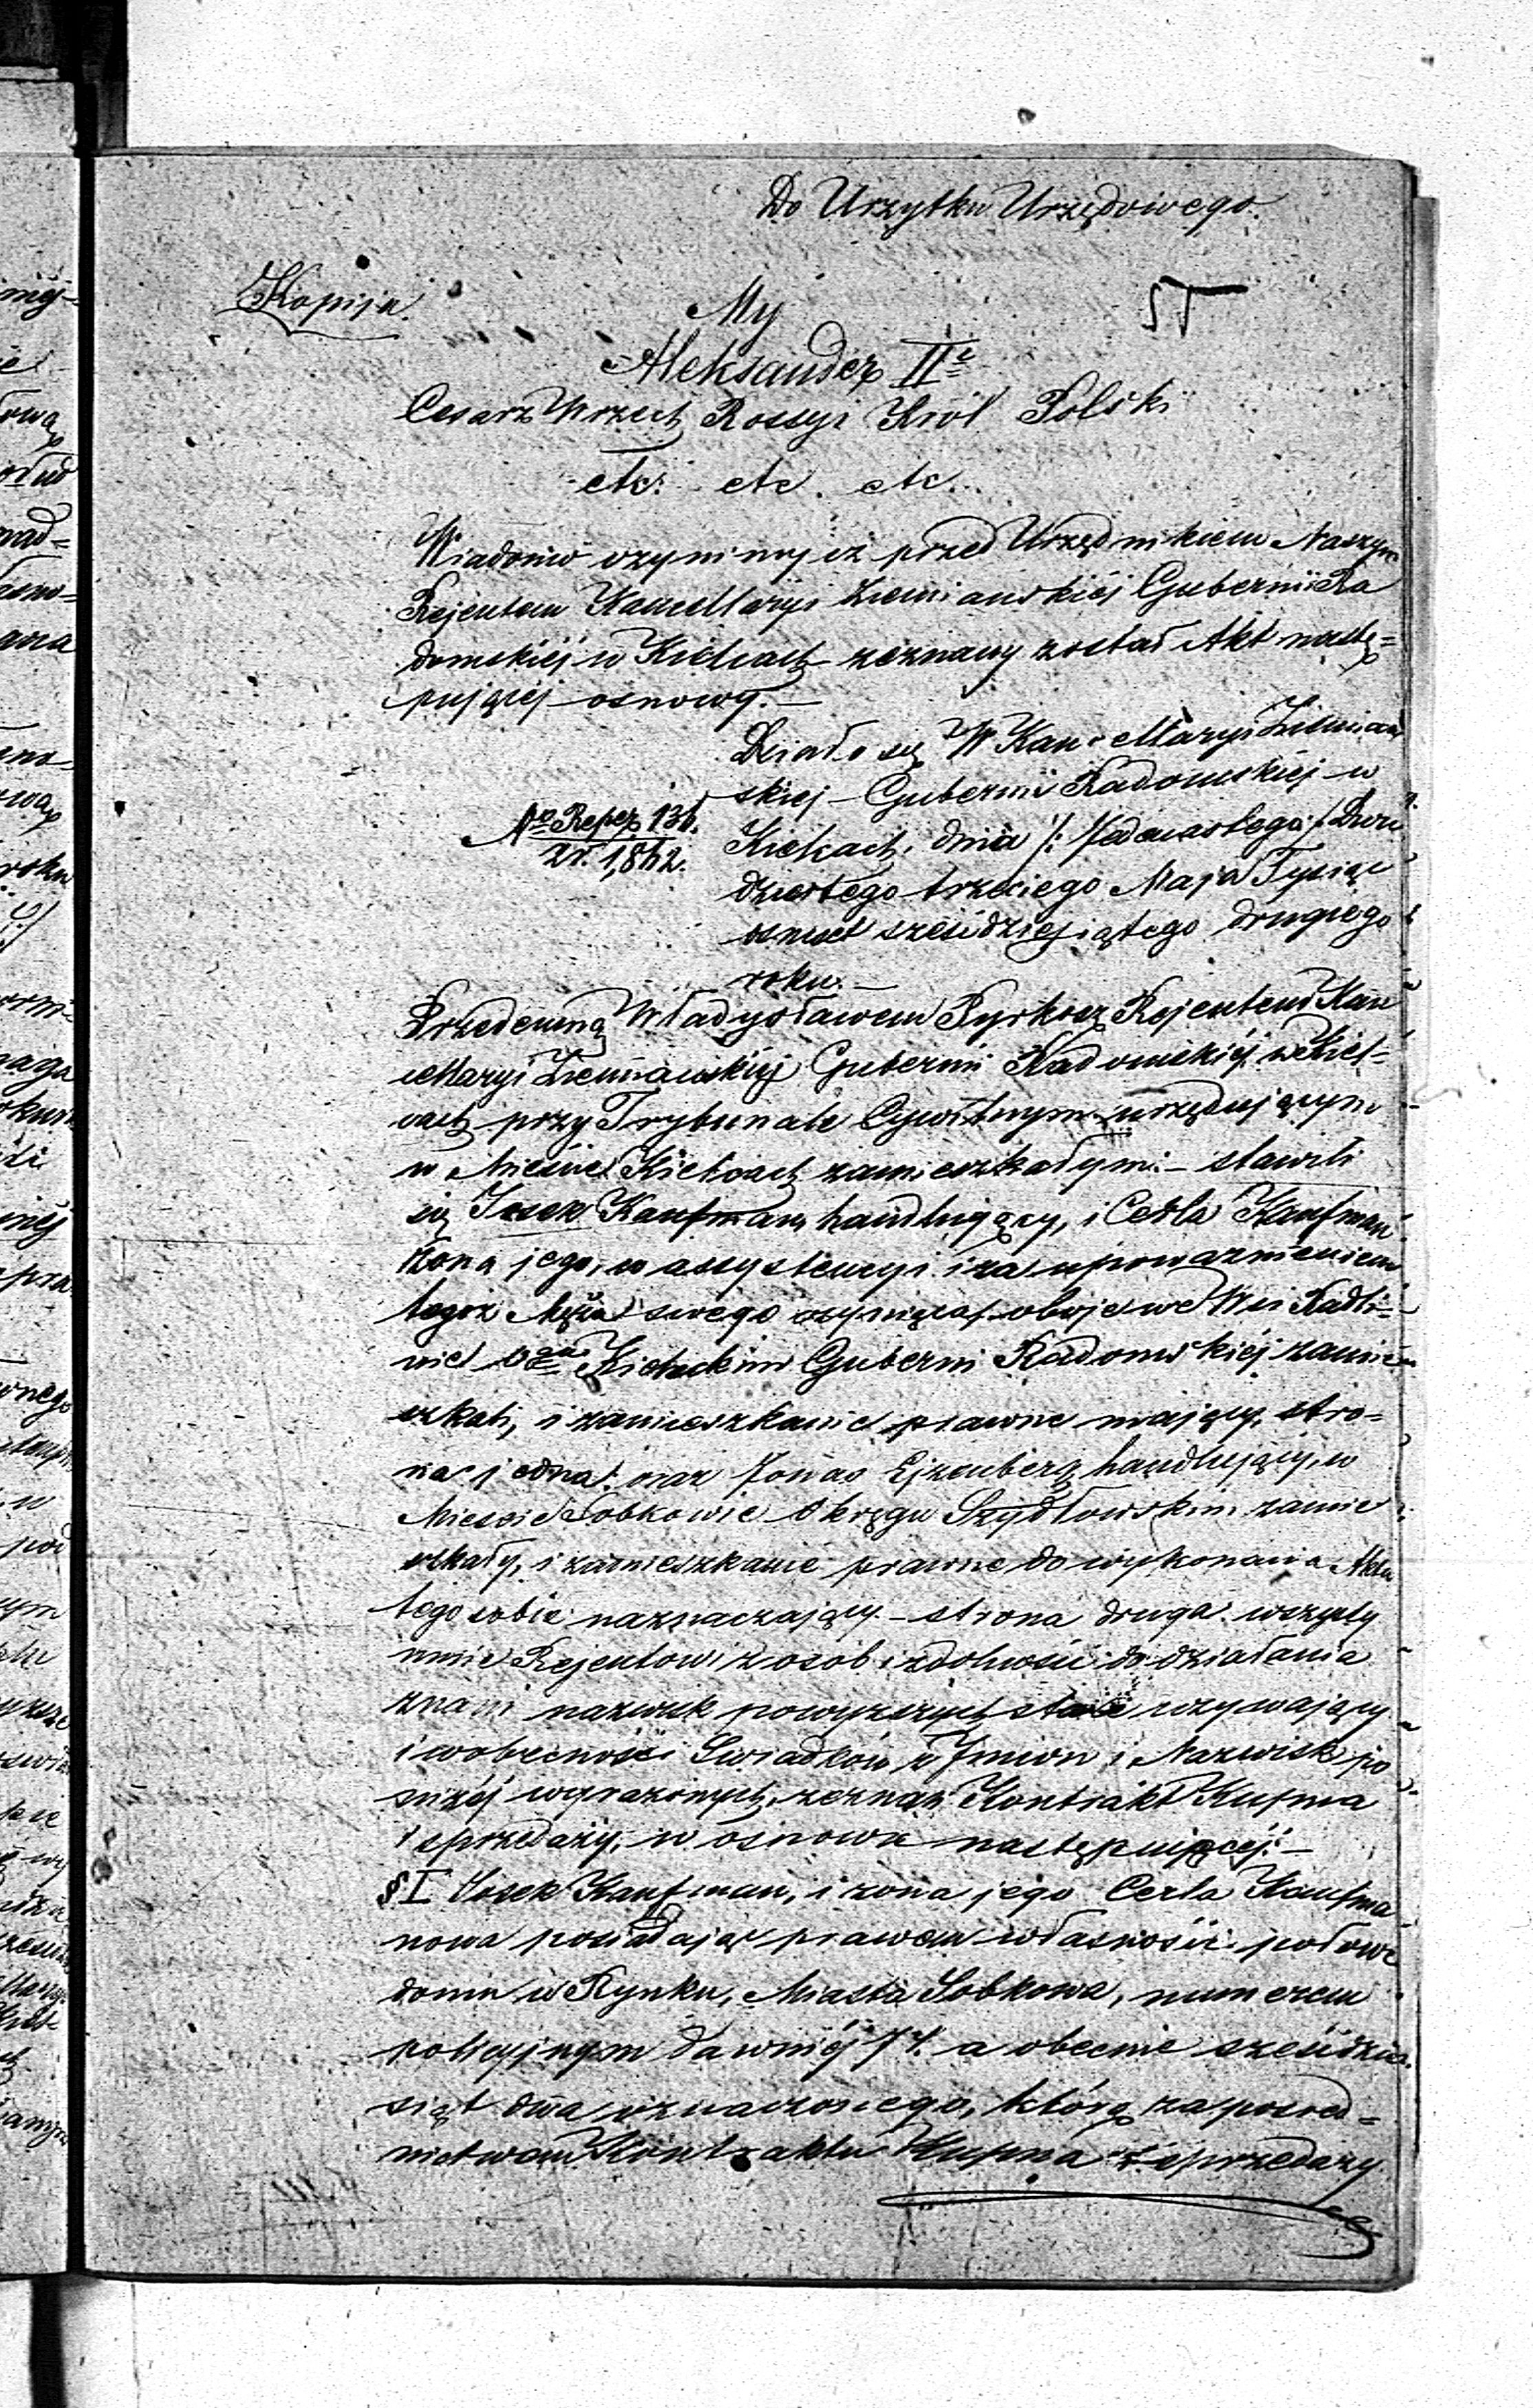 Do Urzytku Urzędowego.
Kopija.
57
My
Aleksander II
Cesarz Wrzech Rossyi Król Polski
etc. etc. etc.
Wiadomo czynimy iż przed Urzędnikiem Naszym
Rejentem Kancellaryi Ziemiańskiej Gubernii Ra
domskiej w Kielcach zeznany został Akt nastę=
pującej osnowy.—
Działo się W Kancellaryi Ziemiań
skiej Gubernii Radomskiej w
No Reper 136.
z r. 1862.
Kielcach, dnia /: Jedenastego :/ Dwu
dziestego trzeciego Maja Tysiąc
osmset sześdziesiątego drugiego
roku.—
Przedemną Władysławem Pyrkosz Rejentem Kan
cellaryi Ziemiańskiej Gubernii Radomskiej w Kiel=
cach przy Trybunale Cywilnym urzędującym
w Mieście Kielcach zamieszkałym:— stawili
się Josek Kaufman, handlujący, i Cerla Kaufman
żona jego, w assystencyi i za upoważnieniem
tegoż Męża swego czyniąca, oboje we Wsi Radli=
nie Ogu Kieleckim Guberni Radomskiej zamie
szkali, i zamieszkanie prawne mający, stro=
na jedna. oraz Jonas Ejzenberg handlujący, w
Mieście Sobkowie Okręgu Szydłowskim zamie
szkały, i zamieszkanie prawne do wykonania Aktu
tego sobie naznaczający — strona druga. wszyscy
mnie Rejentowi z osób i zdolności do działania
znani nazwisk powyższych używający
i w obecności Swiadków, z Imion i Nazwisk po
niżej wyrażonych, zeznali Kontrakt Kupna
i sprzedaży, w osnowie następującej:—
§ I Josek Kaufman, i żona jego Cerla Kaufma
nowa posiadając prawem własności połowę
domu w Rynku, Miasta Sobkowa, numerem
policyjnym dawniej 74. a obecnie sześdzie
siąt dwa oznaczonego, którą za pośred=
nictwem Kontraktu Kupna i sprzedaży